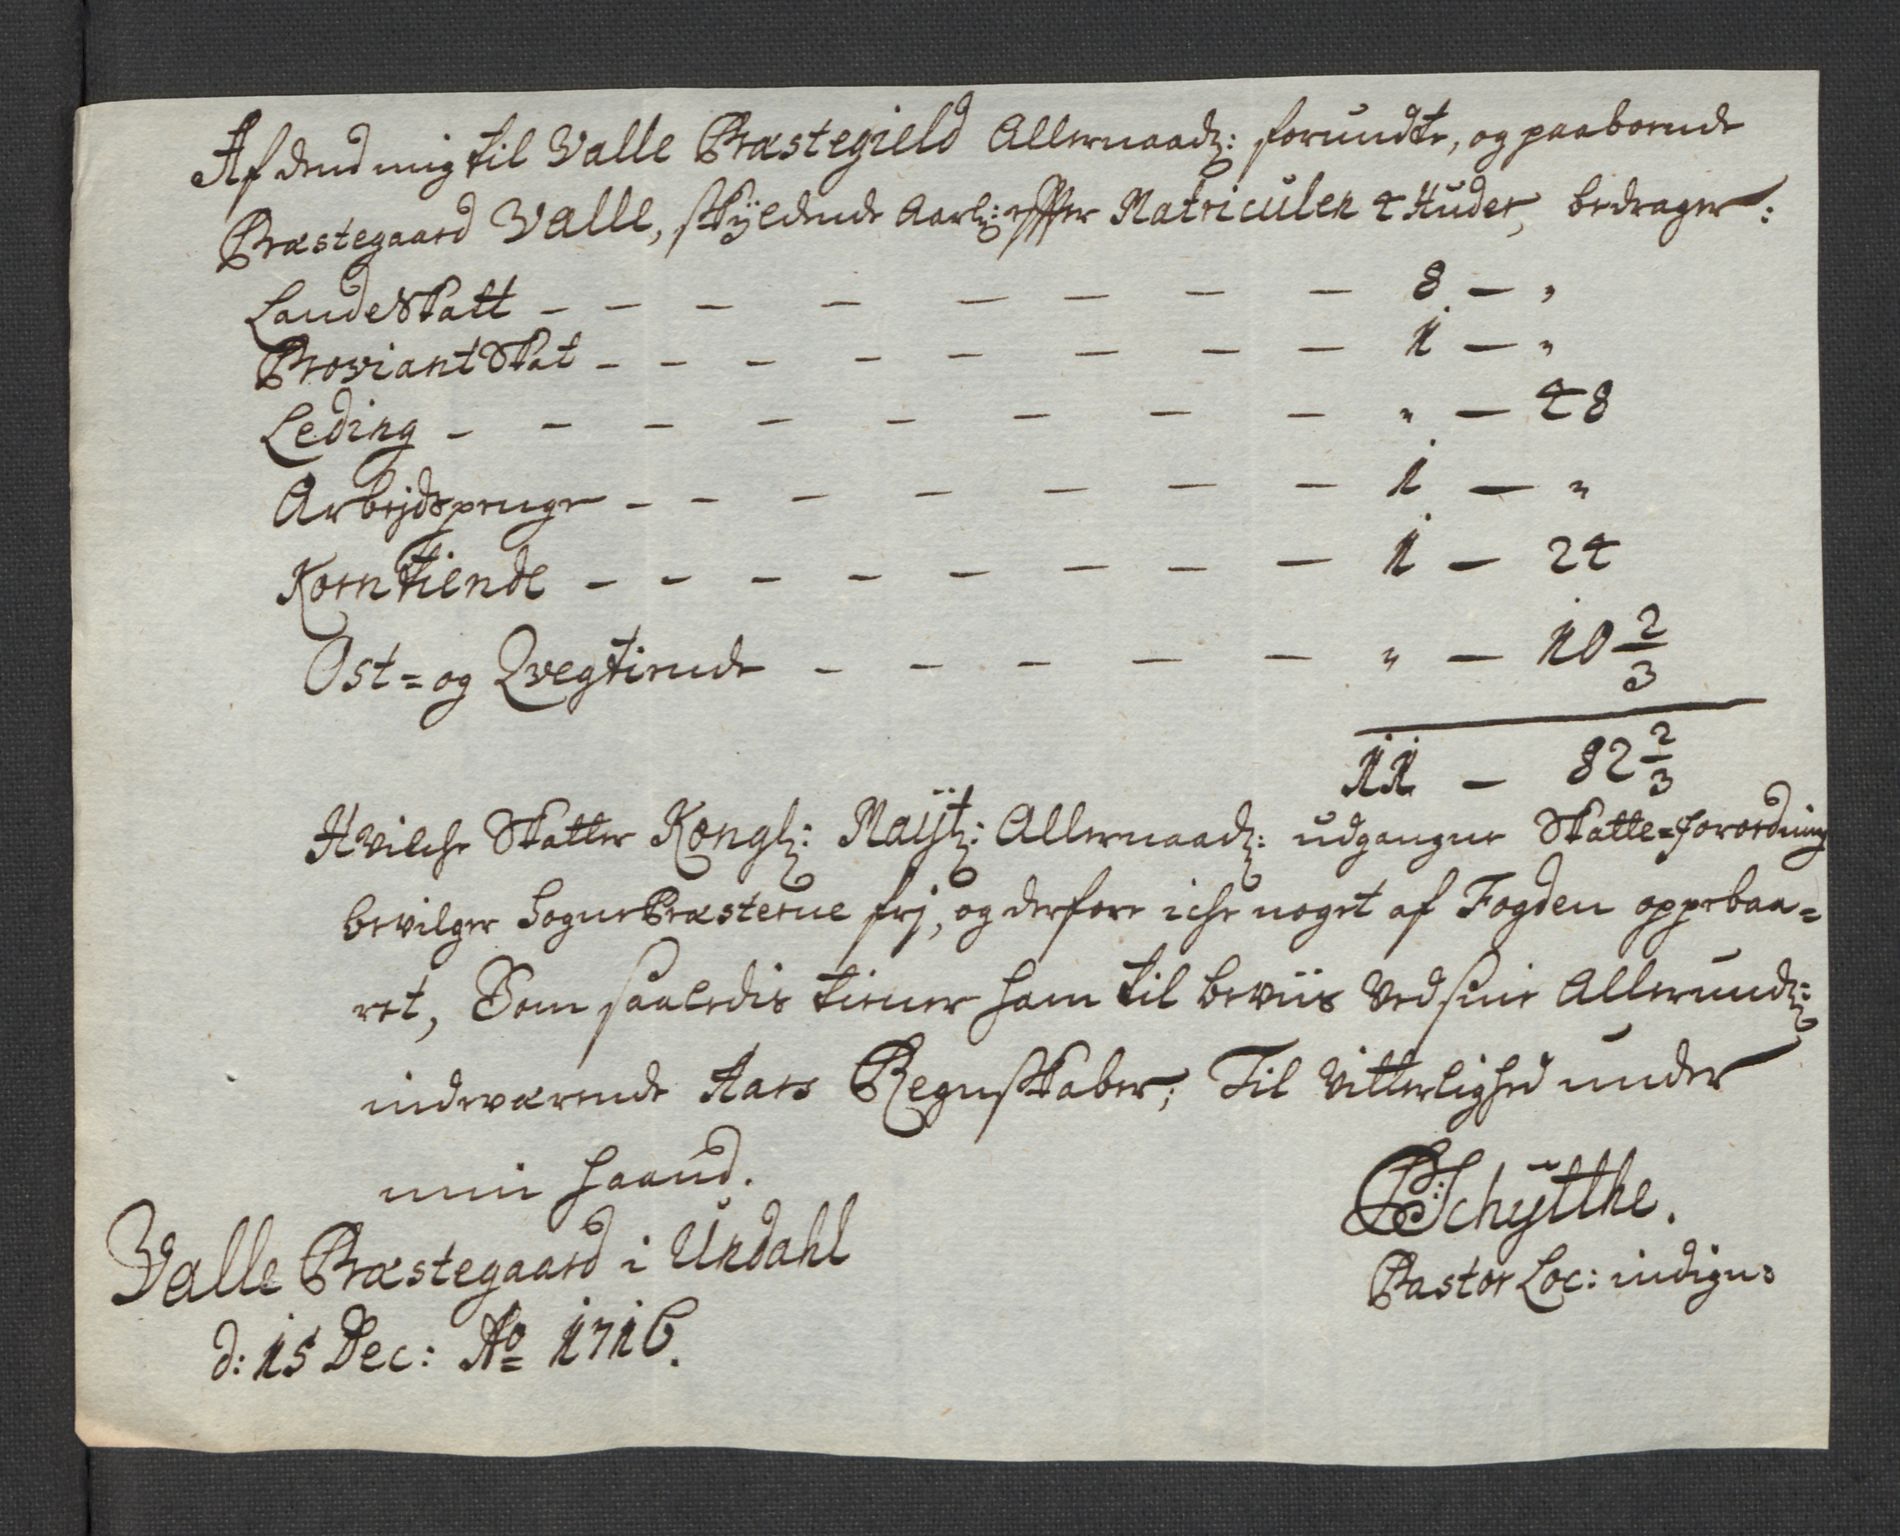 Af dend mig til Valle Præstegield Allernaad: forundte, og paaboende
Præstegaard Valle, skÿldende Aarl: effter Matriculen 4 Huder, bedrager:
LandeSkatt - - - - - - - - 8 - "
ProviantSkat - - - - - - - - 1 - "
Leding - - - - - - - - " - 48
Arbejdspenge - - - - - - - 1 - "
Korntiende - - - - - - - - 1 - 24
Ost= og Qvegtiende - - - - - " - 10 2/3
11 - 82 2/3
Hvilche Skatter Kongl: Maÿt: Allernaad: udgangne Skatte=forordning
bevilger SognePræsterne frj, og derfore iche noget af Fogden oppebaa=
ret, Som saaledis tiener ham til beviis ved sine Allerund:
indeværende Aars Regnskaber; Til Vitterlighed under
min haand.
Valle Præstegaard i Undahl
d: 15 Dec: Ao 1716.
Schÿtthe.
Pastor Loc: indignus